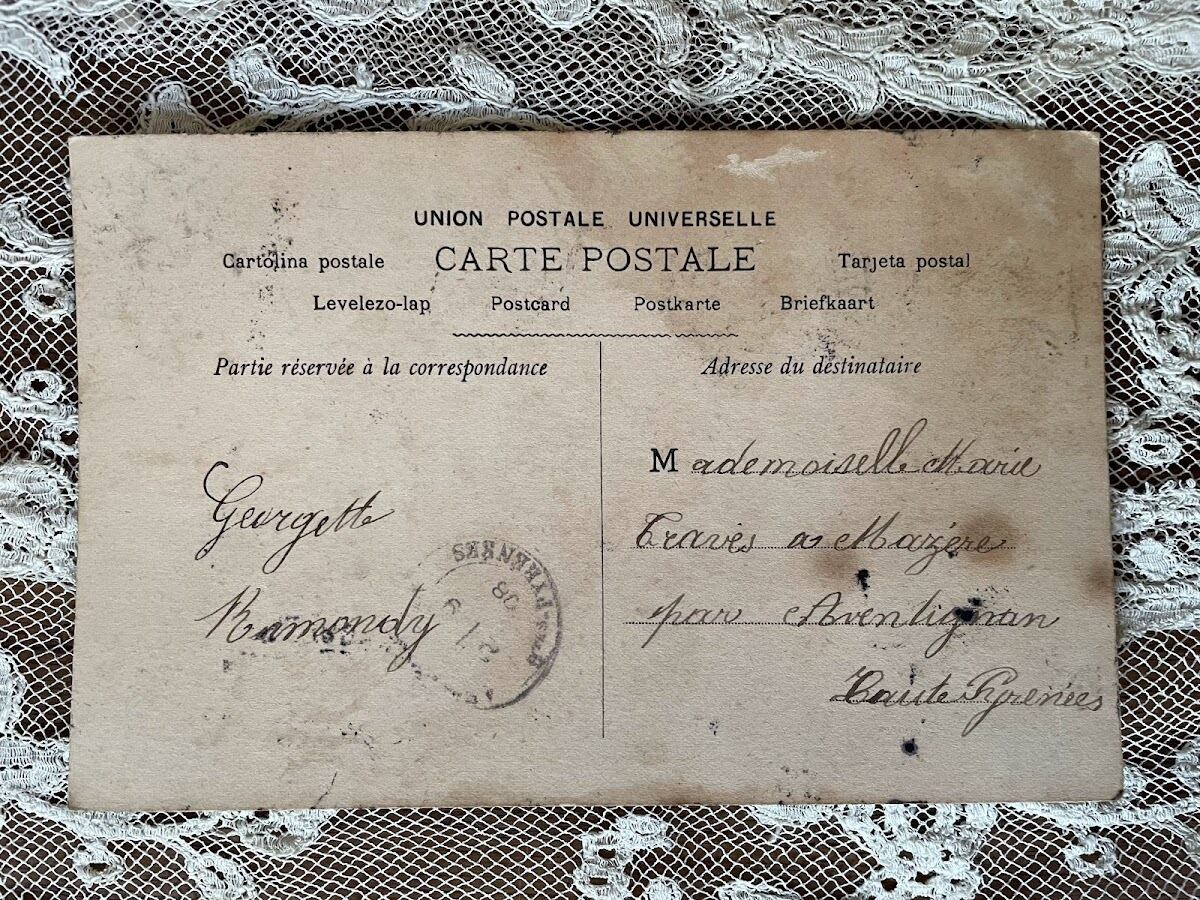 UNION POSTALE UNIVERSELLE
Cartolina postale CARTE POSTALE Tarjeta postal
Levelezo-lap Postcard Postkarte Briefkaart
Partie réservée à la correspondance
Georgette
Ramondy
PYRENEES
Adresse du destinataire
Mademoiselle Marie
Travès a Mazère
par Aventignan
Haute Pyrenées